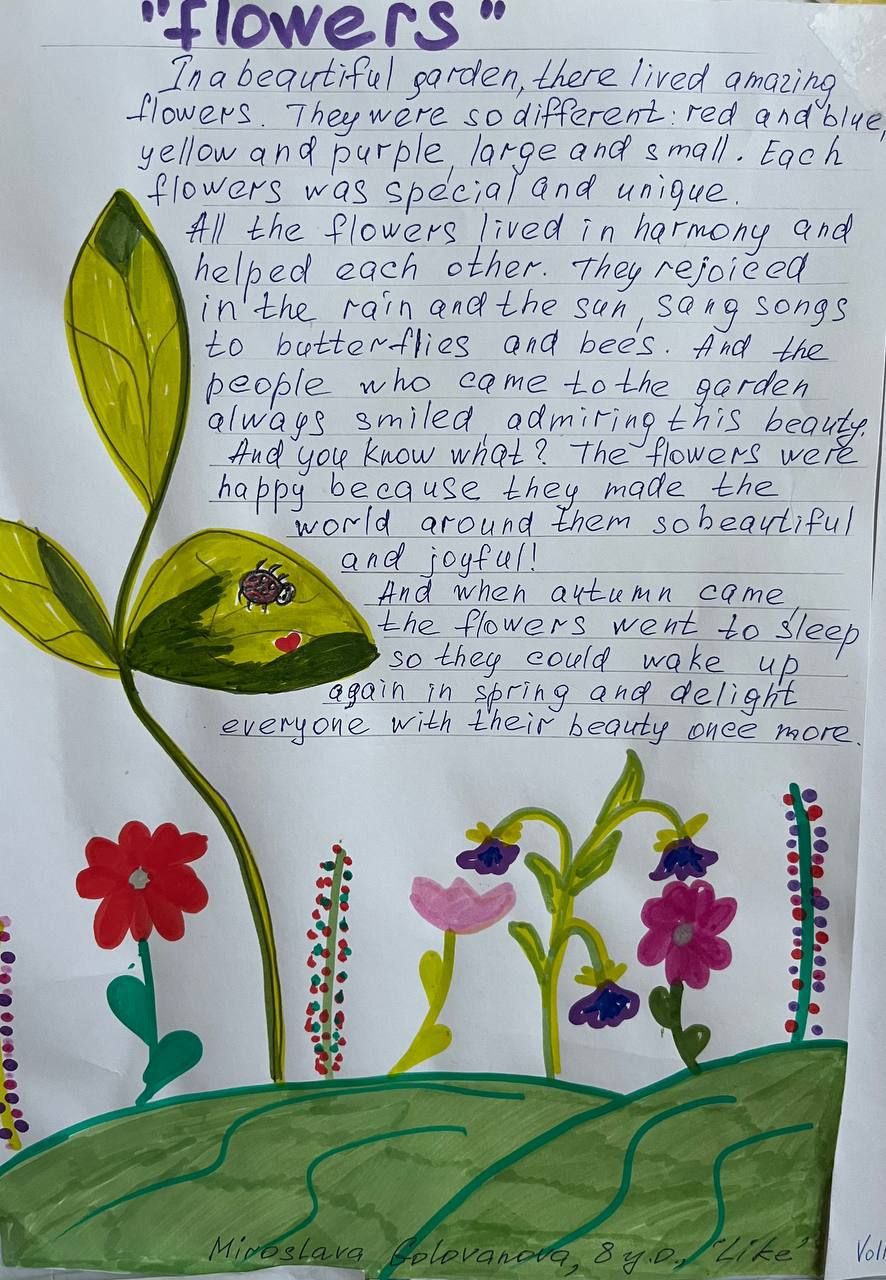 "flowers"
In a beautiful garden, there lived amazing
flowers. They were so different: red and blue,
yellow and purple, large and small. Each
flowers was special and unique.
All the flowers lived in harmony and
helped each other. They rejoiced
in the rain and the sun, sang songs
to butterflies and bees. And the
people who came to the garden
always smiled, admiring this beauty.
And you know what? The flowers were
happy because they made the
world around them so beautiful
and joyful!
And when autumn came
the flowers went to sleep
so they could wake up
again in spring and delight
everyone with their beauty once more.
Miroslava Golovanova, 8 y.o., "Like"